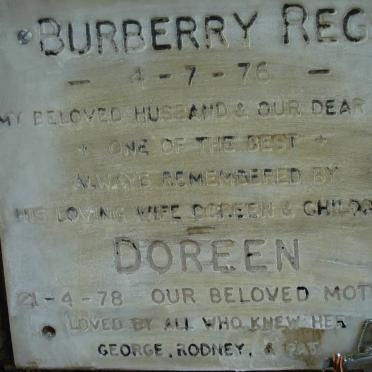 BURBERRY REG
- 4-7-76 -
MY BELOVED HUSBAND & OUR DEAR
ONE OF THE BEST
ALWAYS REMEMBERED BY
HIS LOVING WIFE DOREEN & CHILDR
DOREEN
21-4-78 OUR BELOVED MOT
LOVED BY ALL WHO KNEW HER
GEORGE, RODNEY, &